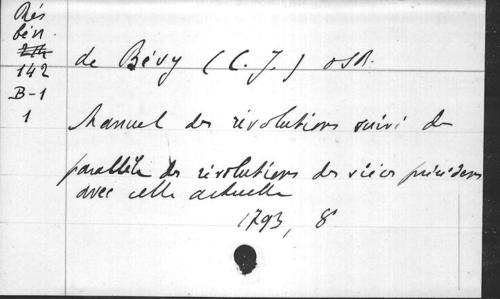 Rés
bén.
214
142
B-1
1
de Bévy (C. J.) OSB.
Manuel des révolutions suivi du
parallèle des révolutions des siècles précédens
avec celle actuelle
1793, 8°